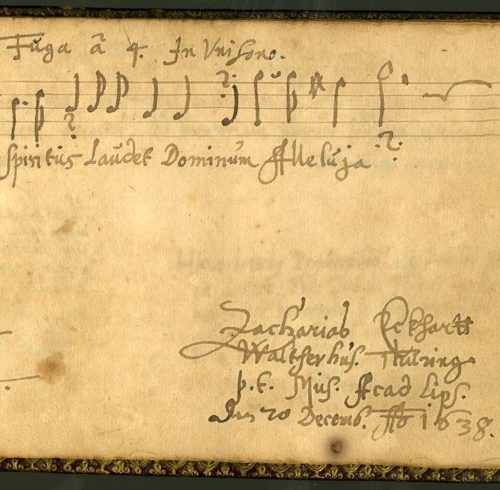 Fuga â 4. In Unisono.
Spiritus Laudet Dominum Alleluja
Zacharias Eckhartt
Waltherhus. Thüring
p. t. Mus. Acad Lips.
20 Decemb. Aō 1638.